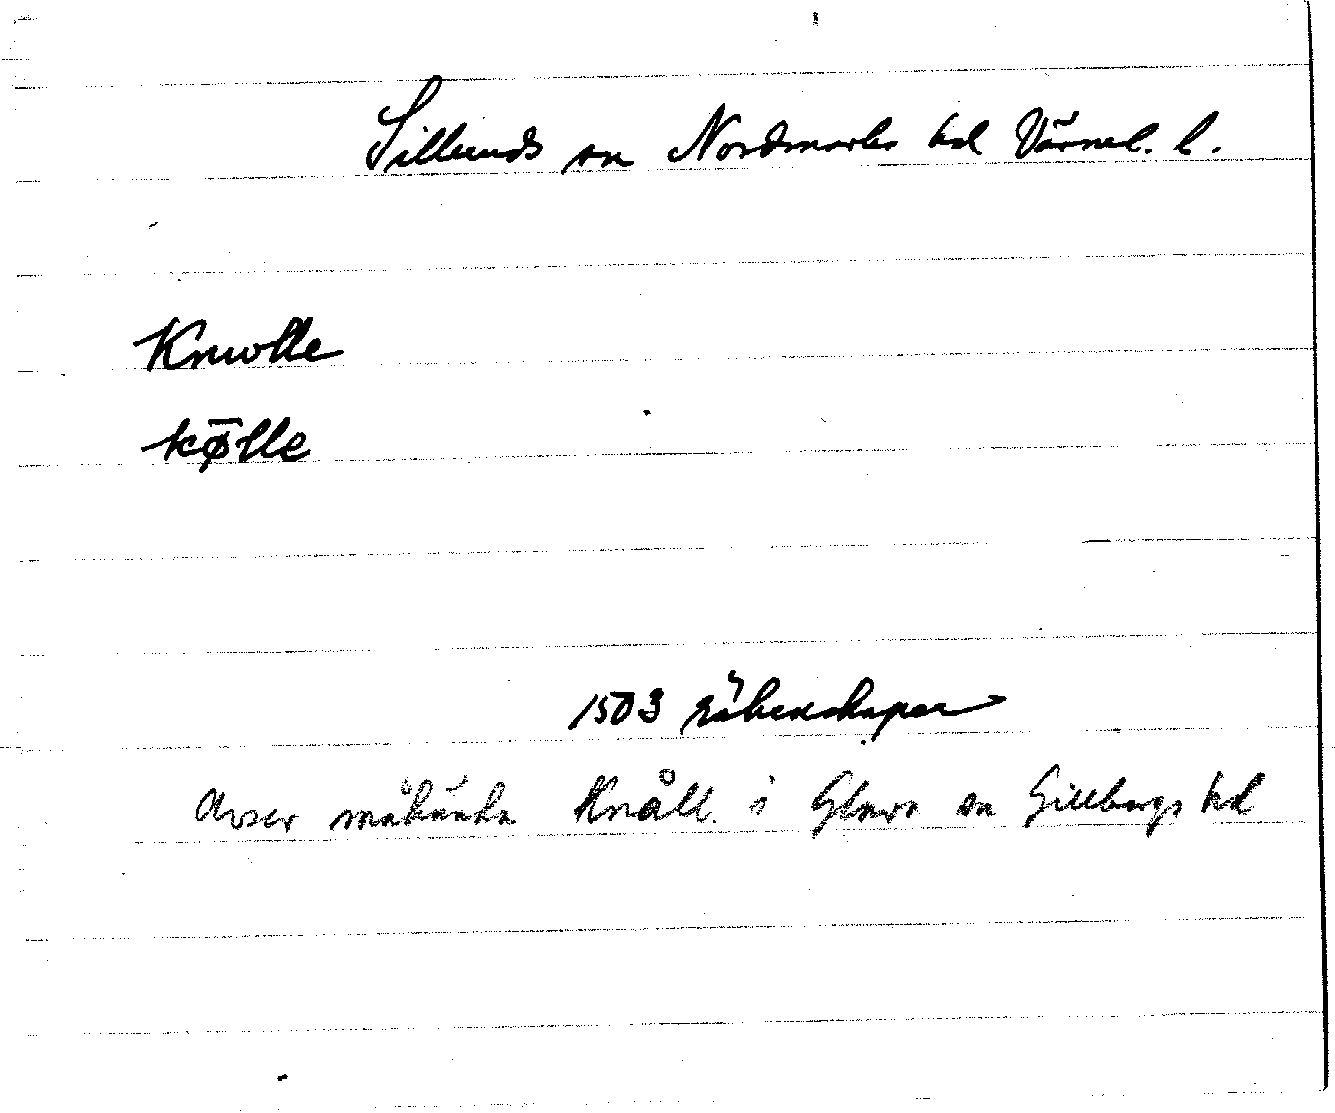 Silleruds sn Nordmarks hd Värml. l.
Knwlle
kØlle
1503 räkenskaper
Avser Knåll. i Glava sn Gillbergs hd